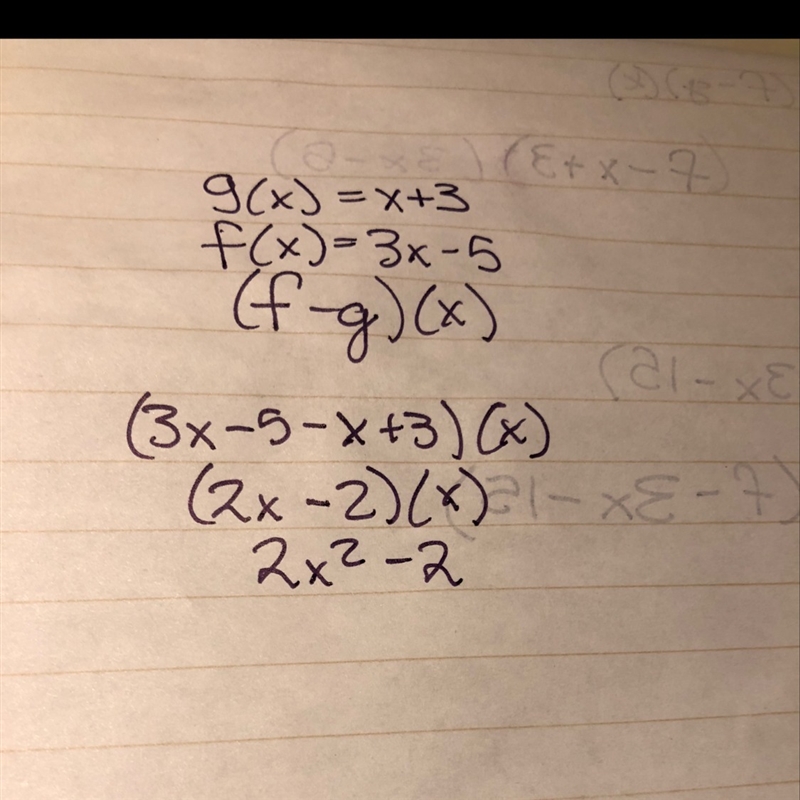 g(x) = x+3
f(x) = 3x - 5
(f - g)(x)
(3x - 5 - x + 3)(x)
(2x - 2)(x)
2x² - 2